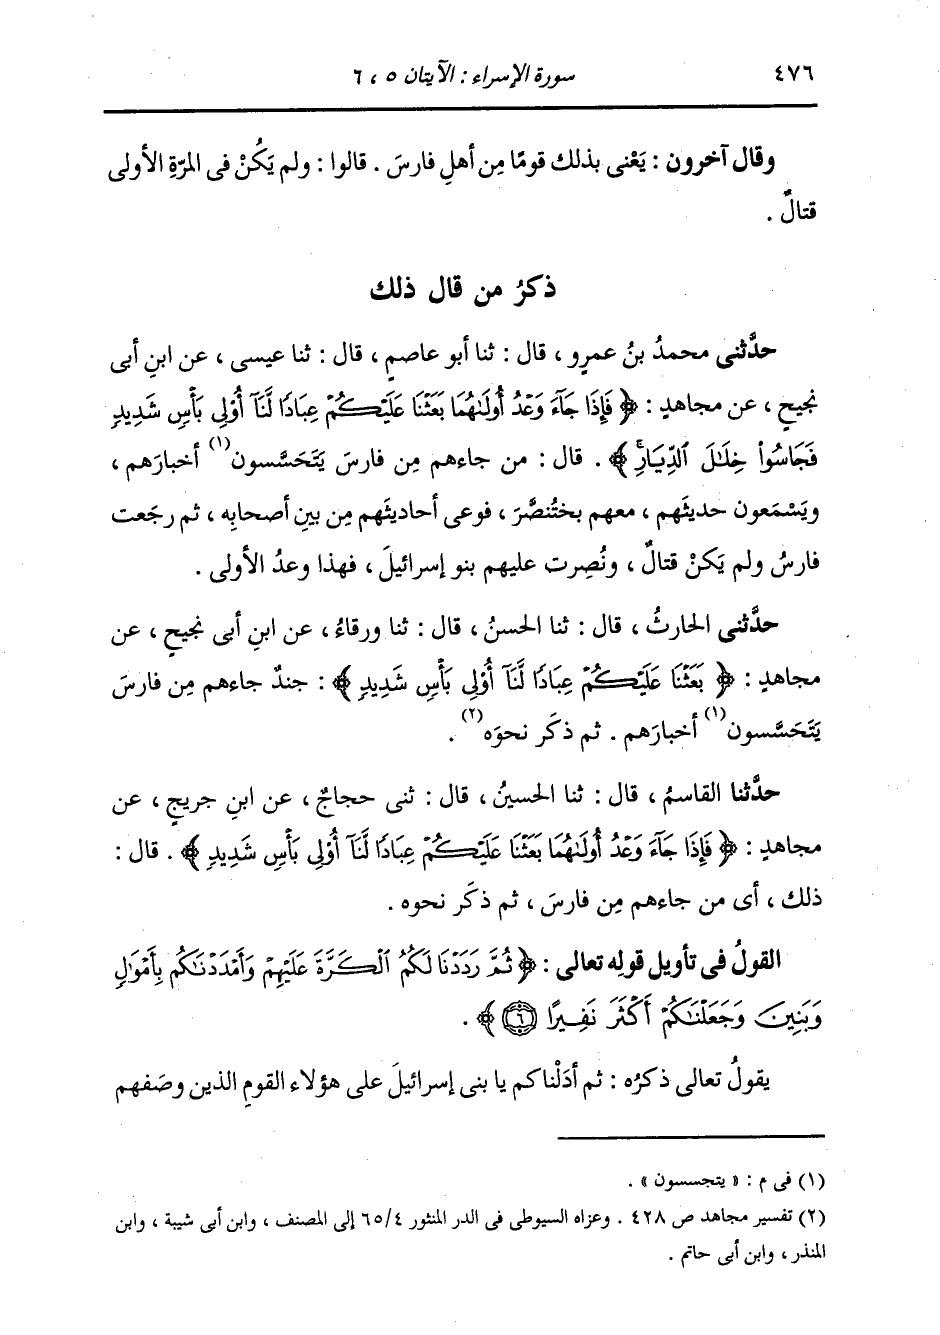 ٤٧٦ سورة الإسراء : الآيتان ٥ ، ٦
وقال آخرون : يَعْنى بذلك قومًا مِن أهلِ فارسَ . قالوا : ولم يَكُنْ فى المرّةِ الأولى
قتالٌ .
ذكرُ من قال ذلك
حدَّثنى محمدُ بنُ عمرٍو ، قال : ثنا أبو عاصمٍ ، قال : ثنا عيسى ، عن ابنِ أبى
نجيحٍ ، عن مجاهدٍ : ﴿ فَإِذَا جَآءَ وَعْدُ أُولَىٰهُمَا بَعَثْنَا عَلَيْكُمْ عِبَادًا لَّنَآ أُوْلِى بَأْسٍ شَدِيدٍ
فَجَاسُواْ خِلَٰلَ ٱلدِّيَارِۚ ﴾ . قال : من جاءهم مِن فارسَ يَتَحَسَّسون(١) أخبارَهم ،
ويَسْمَعون حديثَهم ، معهم بختُنصَّرَ ، فوعى أحاديثَهم مِن بينِ أصحابِه ، ثم رجَعت
فارسُ ولم يَكنْ قتالٌ ، ونُصِرت عليهم بنو إسرائيلَ ، فهذا وعدُ الأولى .
حدَّثنى الحارثُ ، قال : ثنا الحسنُ ، قال : ثنا ورقاءُ ، عن ابنِ أبى نجيحٍ ، عن
مجاهدٍ : ﴿ بَعَثْنَا عَلَيْكُمْ عِبَادًا لَّنَآ أُوْلِى بَأْسٍ شَدِيدٍ ﴾ : جندٌ جاءهم مِن فارسَ
يَتَحَسَّسون(١) أخبارَهم . ثم ذكَر نحوَه(٢) .
حدَّثنا القاسمُ ، قال : ثنا الحسينُ ، قال : ثنى حجاجٌ ، عن ابنِ جريجٍ ، عن
مجاهدٍ : ﴿ فَإِذَا جَآءَ وَعْدُ أُولَىٰهُمَا بَعَثْنَا عَلَيْكُمْ عِبَادًا لَّنَآ أُوْلِى بَأْسٍ شَدِيدٍ ﴾ . قال :
ذلك ، أى من جاءهم مِن فارسَ ، ثم ذكَر نحوه .
القولُ فى تأويل قولِه تعالى : ﴿ ثُمَّ رَدَدْنَا لَكُمُ ٱلْكَرَّةَ عَلَيْهِمْ وَأَمْدَدْنَٰكُم بِأَمْوَٰلٍ
وَبَنِينَ وَجَعَلْنَٰكُمْ أَكْثَرَ نَفِيرًا ۝٦ ﴾ .
يقولُ تعالى ذكرُه : ثم أدَلْناكم يا بنى إسرائيلَ على هؤلاء القومِ الذين وصَفهم
(١) فى م : « يتجسسون » .
(٢) تفسير مجاهد ص ٤٢٨ . وعزاه السيوطى فى الدر المنثور ٦٥/٤ إلى المصنف ، وابن أبى شيبة ، وابن
المنذر ، وابن أبى حاتم .